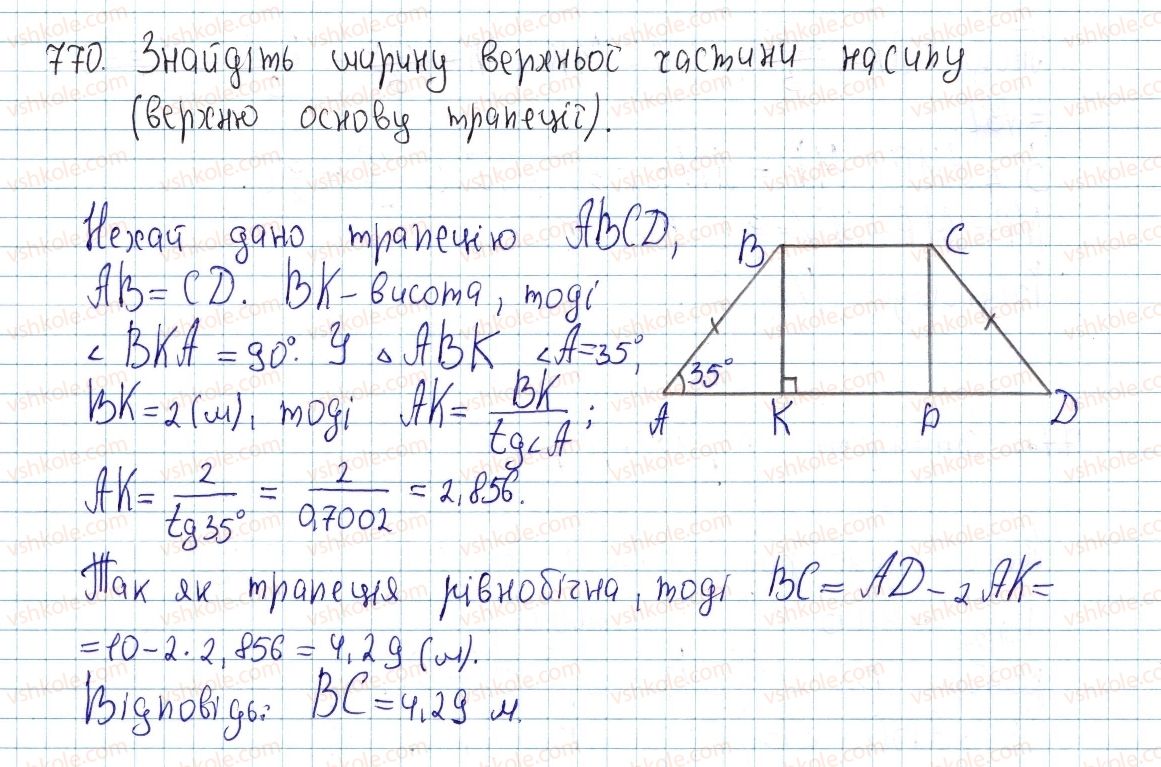 770. Знайдіть ширину верхньої частини насипу
(верхню основу трапеції).
Нехай дано трапецію ABCD,
AB = CD. BK – висота, тоді
∠ BKA = 90°. У △ ABK ∠A = 35°,
BK = 2 (м), тоді AK = BK / tg∠A ;
AK = 2 / tg 35° = 2 / 0,7002 = 2,856.
Так як трапеція рівнобічна, тоді BC = AD – 2 AK =
= 10 – 2 · 2,856 = 4,29 (м).
Відповідь: BC = 4,29 м.
B C
35°
A K P D
vshkole.com